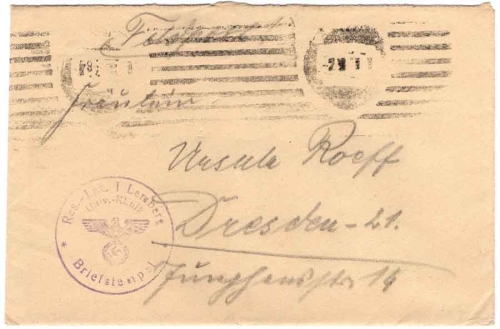 Feldpost
Fräulein
Ursula Roeff
Dresden-21.
Junghansstr. 14
Res.-Laz. I Lemberg
Briefstempel